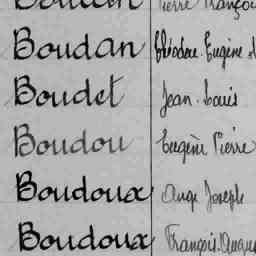 Boudan Théodore Eugène
Boudet Jean-Louis
Boudou Eugène Pierre
Boudoux Ange Joseph
Boudoux François